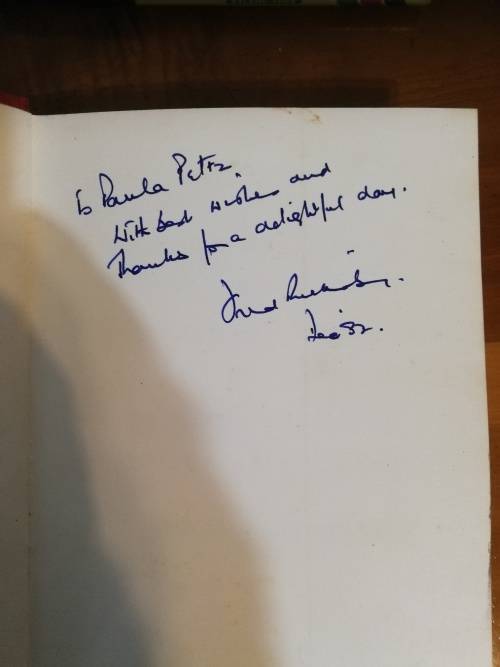 To Paula
With best wishes and
Thanks for a delightful day.
Dec '82.